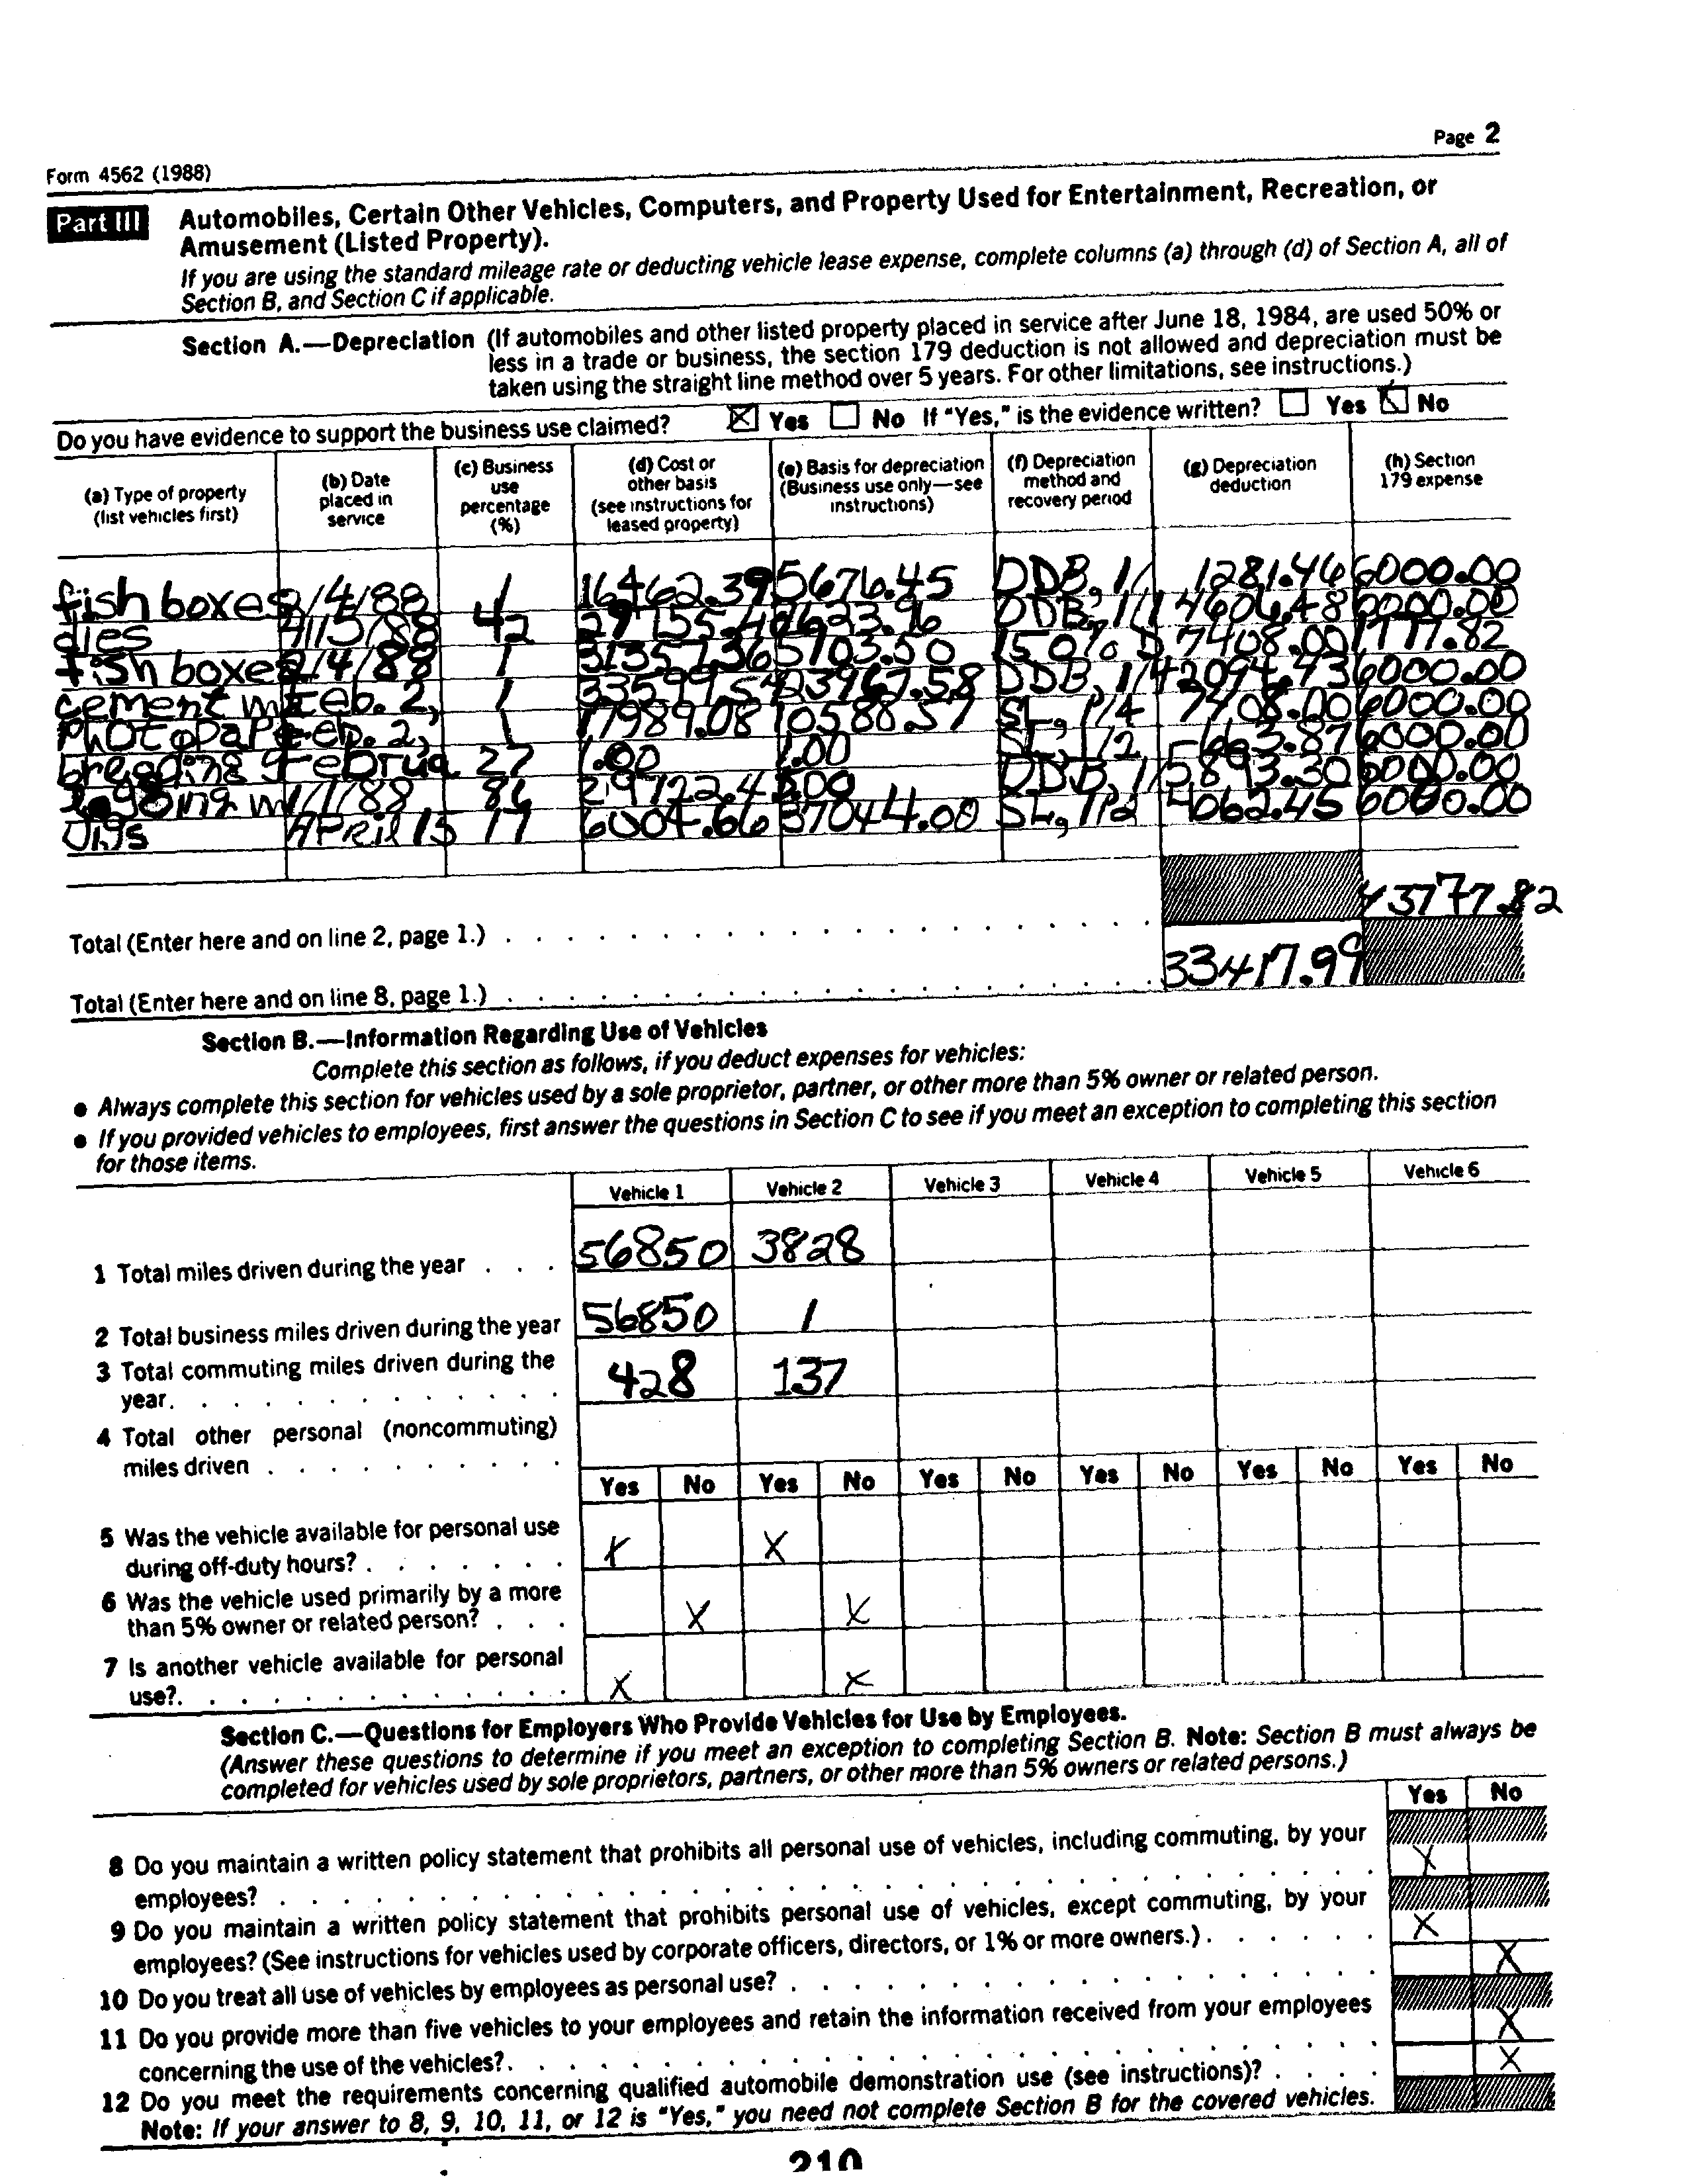 Page 2
Form 4562 (1988)
Part III Automobiles, Certain Other Vehicles, Computers, and Property Used for Entertainment, Recreation, or
Amusement (Listed Property).
If you are using the standard mileage rate or deducting vehicle lease expense, complete columns (a) through (d) of Section A, all of
Section B, and Section C if applicable.
Section A.—Depreciation (If automobiles and other listed property placed in service after June 18, 1984, are used 50% or
less in a trade or business, the section 179 deduction is not allowed and depreciation must be
taken using the straight line method over 5 years. For other limitations, see instructions.)
Do you have evidence to support the business use claimed? X Yes No If "Yes," is the evidence written? Yes X No
(a) Type of property (list vehicles first) (b) Date placed in service (c) Business use percentage (%) (d) Cost or other basis (see instructions for leased property) (e) Basis for depreciation (Business use only—see instructions) (f) Depreciation method and recovery period (g) Depreciation deduction (h) Section 179 expense
fish boxes 2/4/88 1 16462.39 5676.45 DDB, 1/ 1281.46 6000.00
dies 4/15/88 42 29155.4 DDB, 1/1 4606.48 6000.00
fish boxes 2/4/88 1 5703.50 150% D 7408.00 1777.82
cement mi Feb. 2, 1 33599.5 23967.58 DDB, 1/ 2094.43 6000.00
photo pape Feb. 2, 1 17989.08 10588.57 SL, P/4 7408.00 6000.00
breeding g Februa 27 1.00 1.00 SL, 1/2 5663.87 6000.00
logging m 1/1/88 86 29722.4 .00 DDB, 1/ 5893.30 6000.00
jigs April 15 17 6004.66 37044.00 SL, 1/2 4062.45 6000.00
43777.82
Total (Enter here and on line 2, page 1.)
33417.99
Total (Enter here and on line 8, page 1.)
Section B.—Information Regarding Use of Vehicles
Complete this section as follows, if you deduct expenses for vehicles:
● Always complete this section for vehicles used by a sole proprietor, partner, or other more than 5% owner or related person.
● If you provided vehicles to employees, first answer the questions in Section C to see if you meet an exception to completing this section
for those items.
Vehicle 1 Vehicle 2 Vehicle 3 Vehicle 4 Vehicle 5 Vehicle 6
1 Total miles driven during the year . . . 56850 3828
2 Total business miles driven during the year 56850 1
3 Total commuting miles driven during the
year. 428 137
4 Total other personal (noncommuting)
miles driven
Yes No Yes No Yes No Yes No Yes No Yes No
5 Was the vehicle available for personal use
during off-duty hours? X X
6 Was the vehicle used primarily by a more
than 5% owner or related person? X X
7 Is another vehicle available for personal
use? X X
Section C.—Questions for Employers Who Provide Vehicles for Use by Employees.
(Answer these questions to determine if you meet an exception to completing Section B. Note: Section B must always be
completed for vehicles used by sole proprietors, partners, or other more than 5% owners or related persons.)
Yes No
8 Do you maintain a written policy statement that prohibits all personal use of vehicles, including commuting, by your
employees? X
9 Do you maintain a written policy statement that prohibits personal use of vehicles, except commuting, by your
employees? (See instructions for vehicles used by corporate officers, directors, or 1% or more owners.) X
10 Do you treat all use of vehicles by employees as personal use? X
11 Do you provide more than five vehicles to your employees and retain the information received from your employees
concerning the use of the vehicles? X
12 Do you meet the requirements concerning qualified automobile demonstration use (see instructions)? X
Note: If your answer to 8, 9, 10, 11, or 12 is "Yes," you need not complete Section B for the covered vehicles.
210